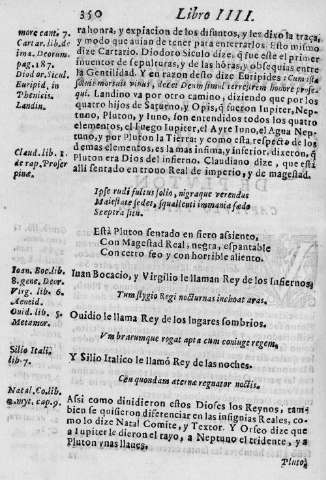 350 Libro IIII.
more cant. 7.
Cartar. lib. de
ima. Deorum.
pag. 187.
Diodor. Sicul.
Euripid. in
Phenicis.
Landin.
rahonra, y expiacion de los difuntos, y lez dixo la traça,
y modo que auian de tener para enterrarlos. Esto mismo
dize Cartario. Diodoro Siculo dize, q̃ fue este el primer
inuentor de sepulturas, y de las hõras, y obsequias entre
la Gentilidad. Y en razon desto dize Euripides: Cum ista
landino va por otro camino, diziendo que por los
quatro hijos de Saturno, y Opis, q̃ fueron Iupiter, Nep-
tuno, Pluton, y Iuno, son entendidos todos los quatro
elementos, el Fuego por Iupiter, el Ayre Iuno, el Agua Nep-
tuno, y por Pluton la Tierra: y como esta, respecto de los
demas elementos, es la mas infima, y inferior, dixeron, q̃
Claud. lib. 1.
de rap. Proser
pinæ.
Pluton era Dios del infierno. Claudiano dize, que está
alli sentado en trono Real de imperio, y de magestad.
Ipse rudi fultus solio, nigraque verendus
Maiestate sedet, squallenti immania fœdo
Sceptra situ.
Està Pluton sentado en fiero assiento,
Con Magestad Real, negra, espantable
Con cetro feo y con horrible aliento.
Ioan. Boc. lib.
8. gene. Deor.
Virg. lib. 6.
Aeneid.
Iuan Bocacio, y Virgilio le llaman Rey de los Infiernos,
Tum stygio Regi nocturnas inchoat aras.
Ouid. lib. 5.
Metamor.
Ouidio le llama Rey de los lugares sombrios.
Vmbrarumque rogat apta cum coniuge regem.
Silio Itali.
lib. 7.
Y Silio Italico le llamó Rey de las noches.
Ceu quondam æternæ regnator noctis.
Natal. Co. lib.
2. myt. cap. 9.
Assi como diuidieron estos Dioses los Reynos, tam
bien se quisieron diferenciar en las insignias Reales, co-
mo lo dize Natal Comite, y Textor. Y Orfeo dize que
a Iupiter le dieron el rayo, a Neptuno el tridente, y a
Pluton vnas llaues.
Pluto,